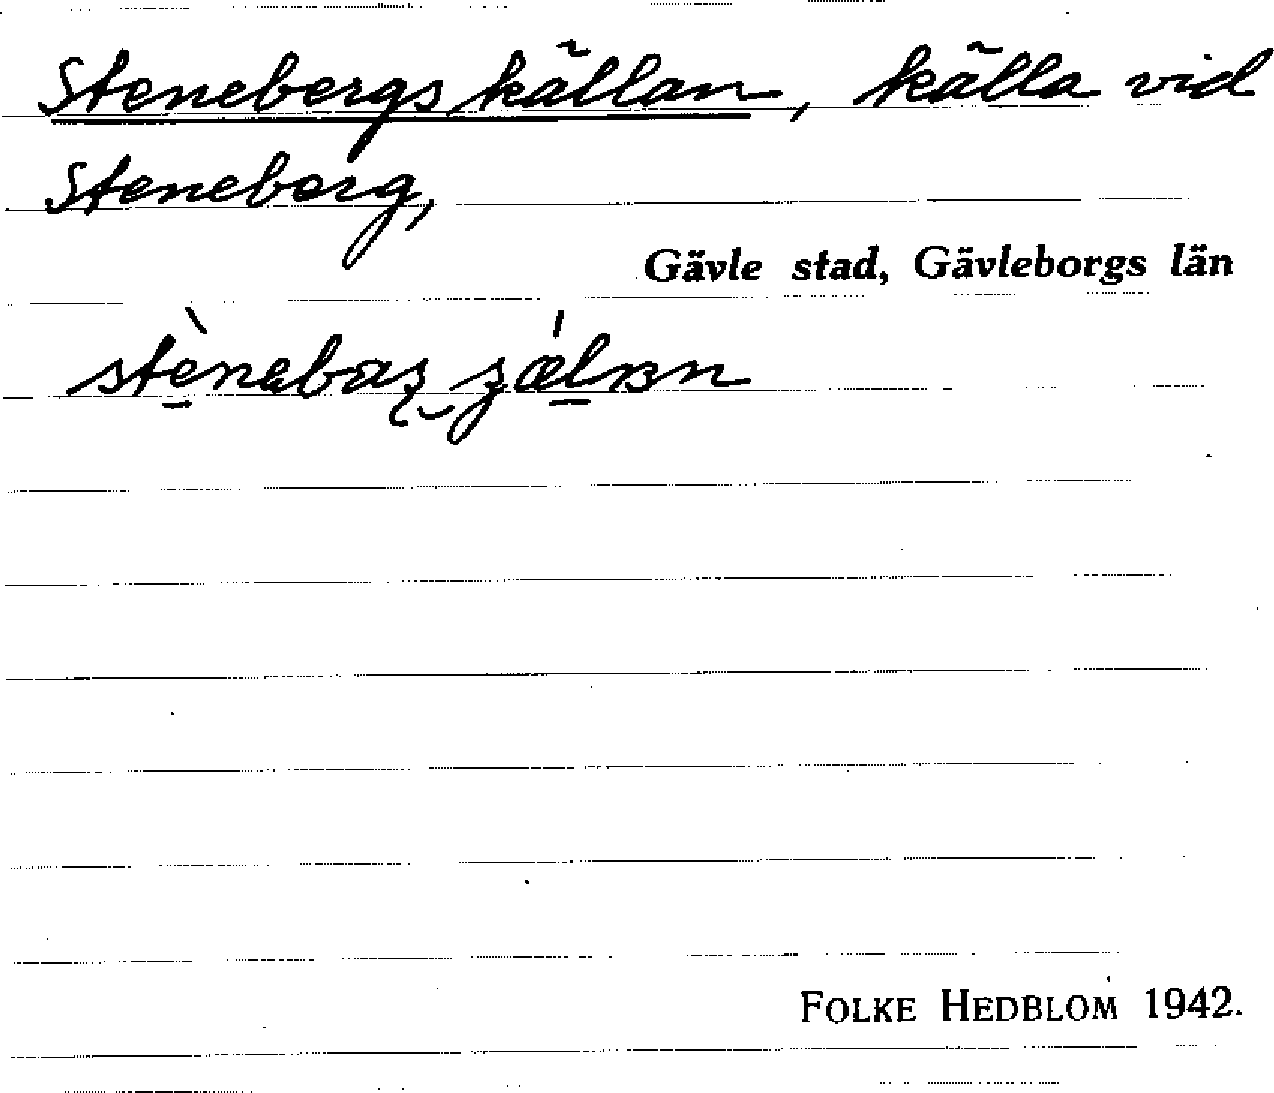 Stenebergs källan, källa vid
Steneberg,
Gävle stad, Gävleborgs län
FOLKE HEDBLOM 1942.